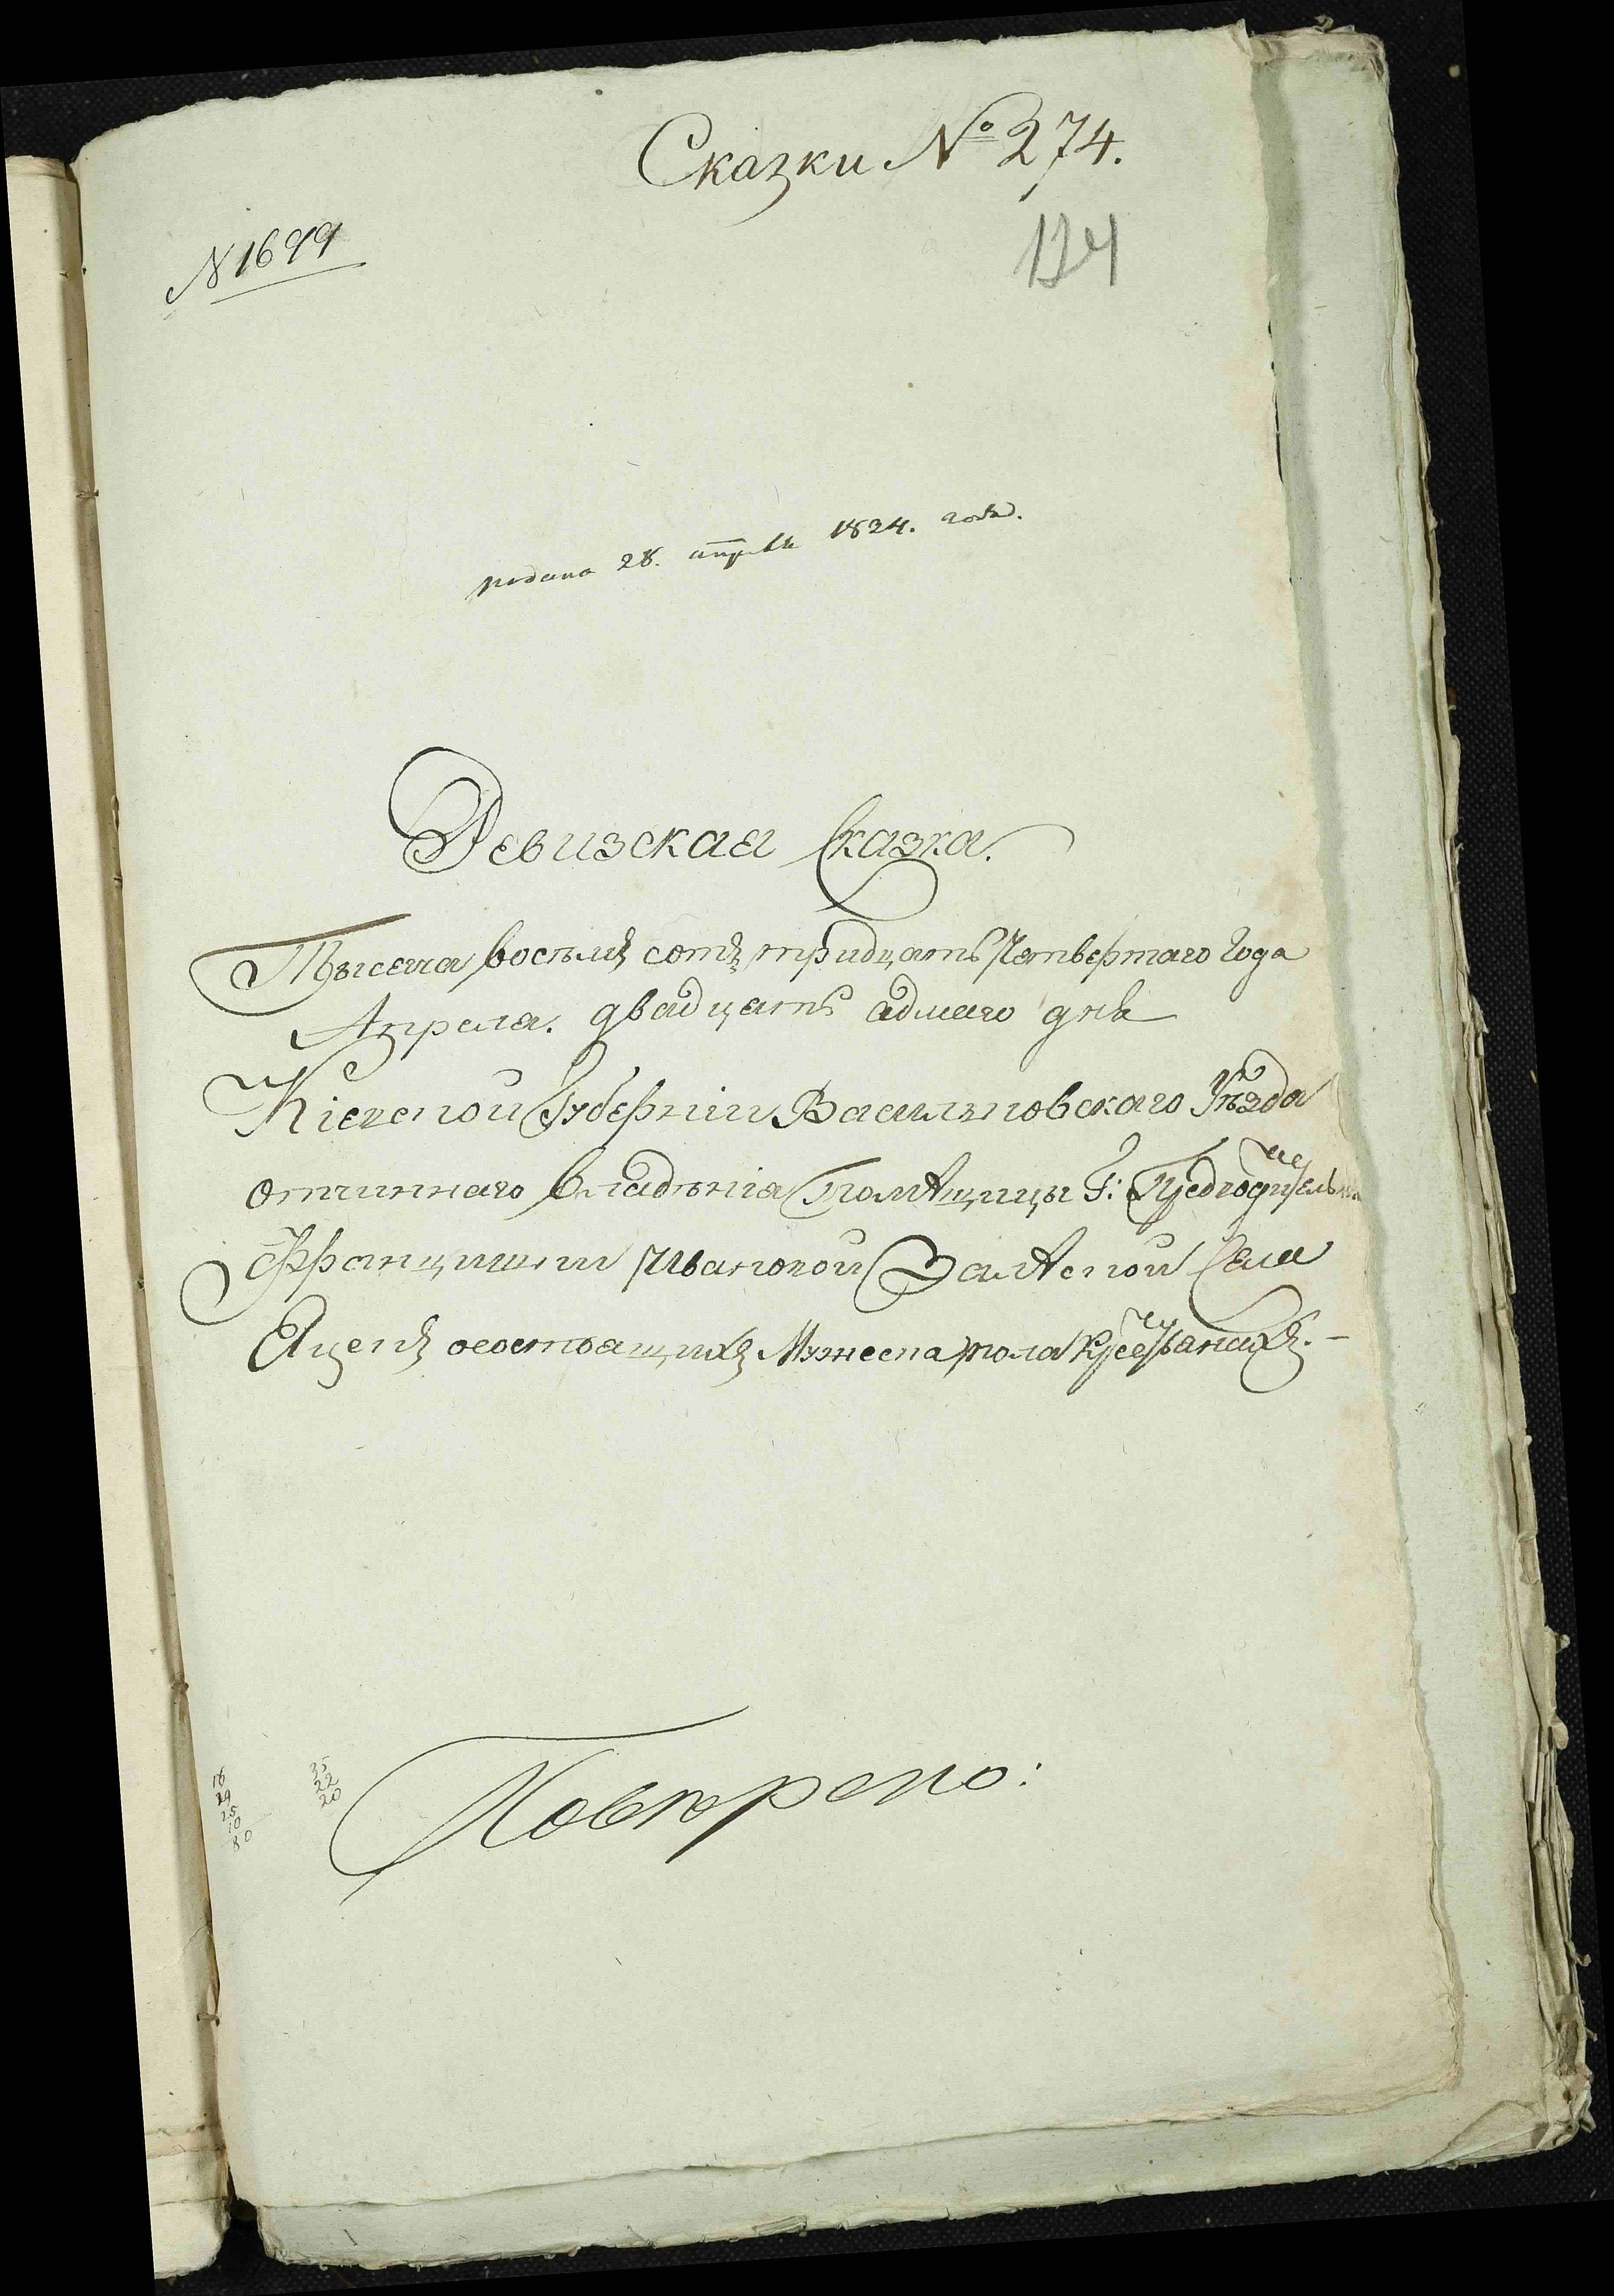 Сказки № 274.
№ 1699
124
подана 28. апреля 1834. года.
Ревизская Сказка.
Тысяча восемъ сотъ тридцать Четвертаго Года
Апреля. двадцать адмаго дня
Кіевской Губерніи Васильковскаго Уѣзда
отчиннаго владѣнія Помѣщицы Г: Предводительши
Францишки Ивановой Залѣской Села
Яцекъ состоящихъ Мужеска пола Крестьянахъ. —
18
29
25
10
80
35
22
20
Поверено: